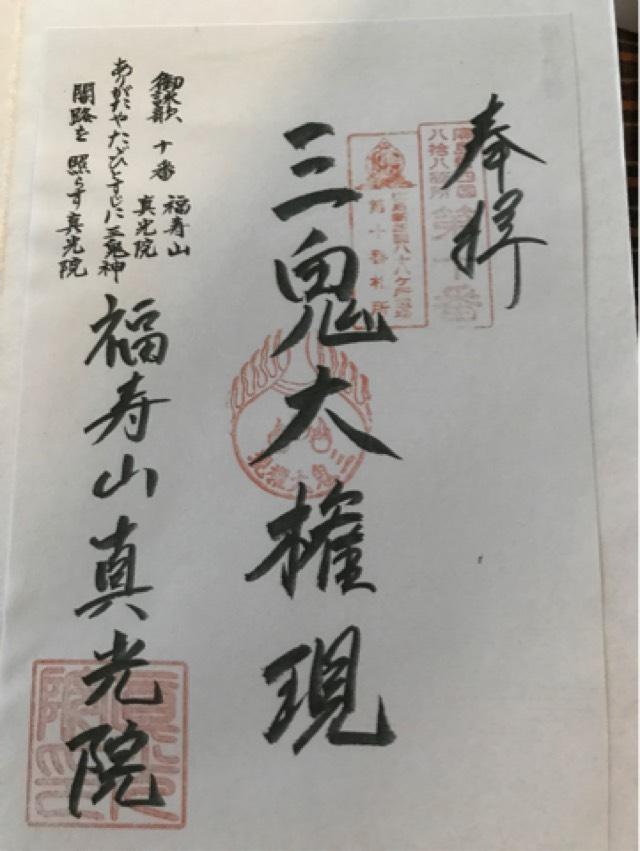 奉拝
八拾八箇所
第十番
第十番札所
三鬼大権現
御詠歌 十番 福寿山
真光院
ありがたやたゞひとすじに三鬼神
闇路を照らす真光院
福寿山真光院